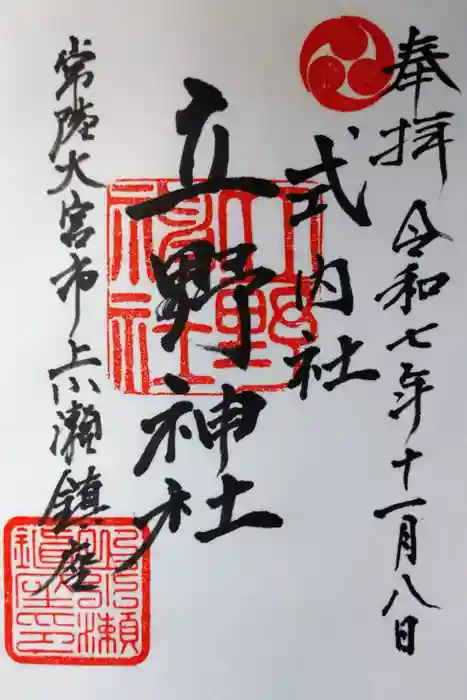 奉拝
令和七年十一月八日
式内社
立野神社
常陸大宮市上小瀬鎮座
立野神社